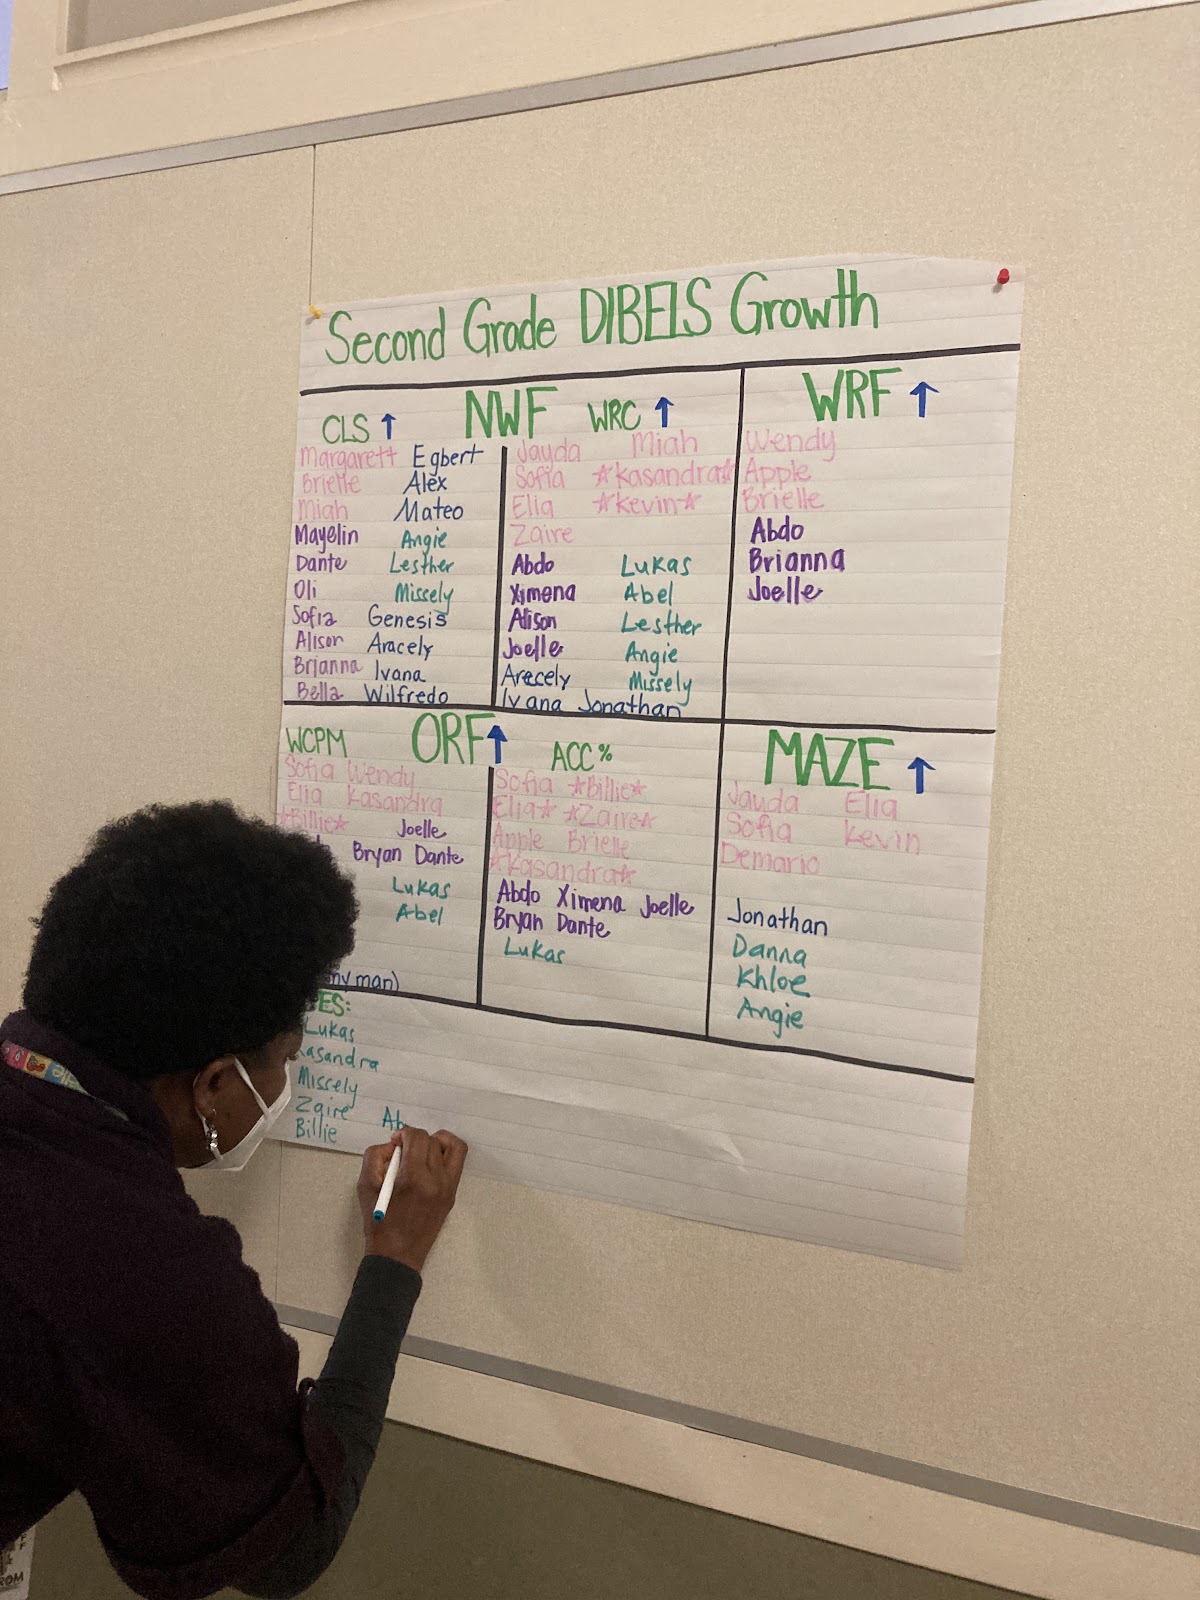 Second Grade DIBELS Growth
NWF
CLS ↑
Margarett Egbert
Brielle Alex
Miah Mateo
Mayelin Angie
Dante Lesther
Oli Missely
Sofia Genesis
Alison Aracely
Brianna Ivana
Bella Wilfredo
WRC ↑
Jayda Miah
Sofia ☆Kasandra☆
Elia ☆Kevin☆
Zaire
Abdo Lukas
Ximena Abel
Alison Lesther
Joelle Angie
Arecely Missely
Ivana Jonathan
WRF ↑
Wendy
Apple
Brielle
Abdo
Brianna
Joelle
ORF ↑
WCPM
Sofia Wendy
Elia Kasandra
☆Billie☆ Joelle
Bryan Dante
Lukas
Abel
my man)
ACC %
Sofia ☆Billie☆
Elia☆ ☆Zaire☆
Apple Brielle
☆Kasandra☆
Abdo Ximena Joelle
Bryan Dante
Lukas
MAZE ↑
Jayda Elia
Sofia Kevin
Demario
Jonathan
Danna
Khloe
Angie
Lukas
Kasandra
Missely
Zaire Ab
Billie